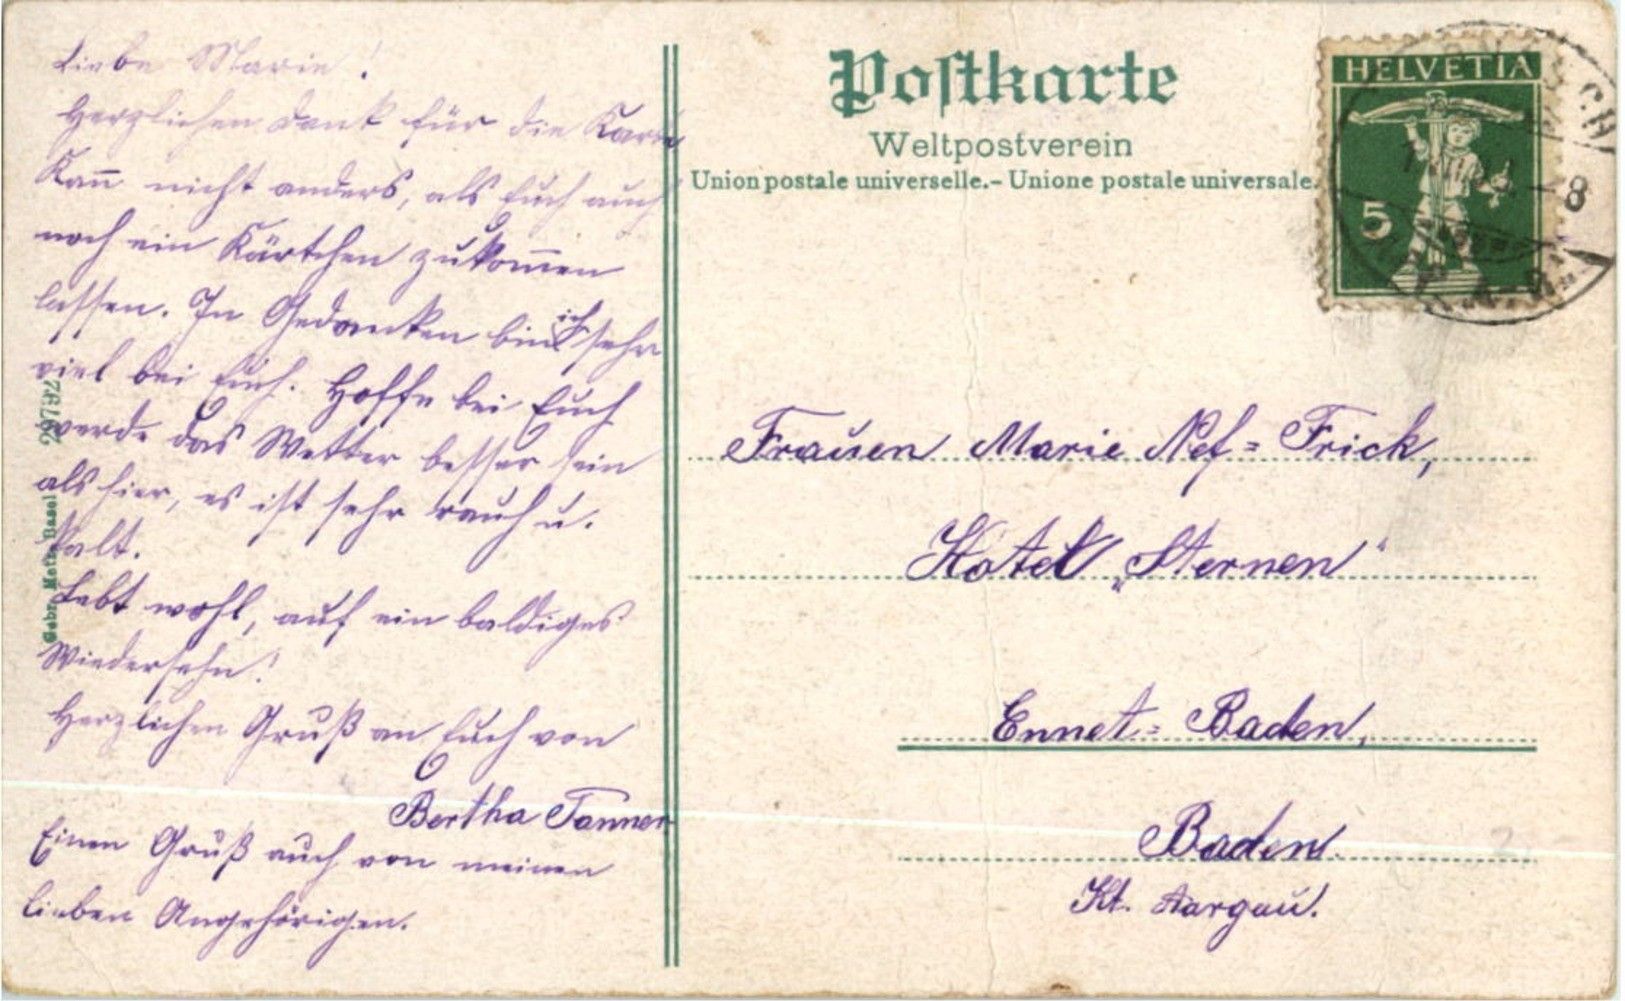 Liebe Marie!
Herzlichen Dank für die Karte
Kann nicht anders, als Euch auch
noch ein Kärtchen zukommen
lassen. In Gedanken bin ich sehr
viel bei Euch. Hoffe bei Euch
werde das Wetter besser sein
als hier, es ist sehr rauh u.
kalt.
Lebt wohl, auf ein baldiges
Wiedersehn!
Herzlichen Gruß an Euch von
Bertha Tanner
Einen Gruß auch von meinen
lieben Angehörigen.
Gebr. Metz, Basel 29792
Postkarte
Weltpostverein
Union postale universelle.- Unione postale universale.
HELVETIA
5
8
Frauen Marie Nef=Frick,
Hotel „Sternen"
Ennet=Baden,
Baden.
Kt. Aargau.